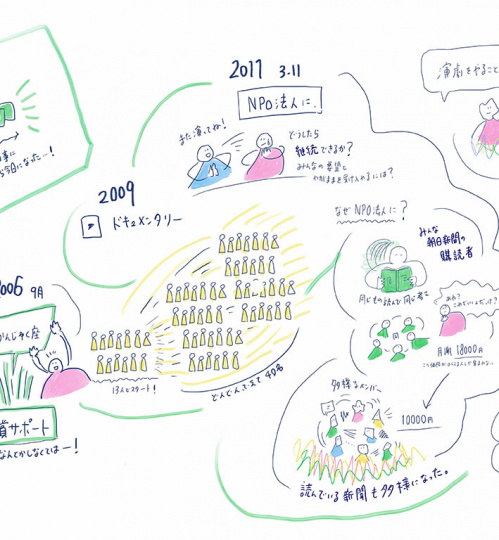 事に
今日になった…！
2006 9月
かんじゃく座
サポート
なんとかしなくては…！
13人でスタート！
2009
ドキュメンタリー
どんどんふえて40名
2011 3.11
NPO法人に。
また演ってね！
どうしたら
継続できるか？
みんなの要望と
演劇をやること
なぜNPO法人に？
みんな
朝日新聞の
購読者
同じもの読んで同じ考え
あれ？
月謝 18000円
多様なメンバー
10000円
読んでいる新聞も多様になった。